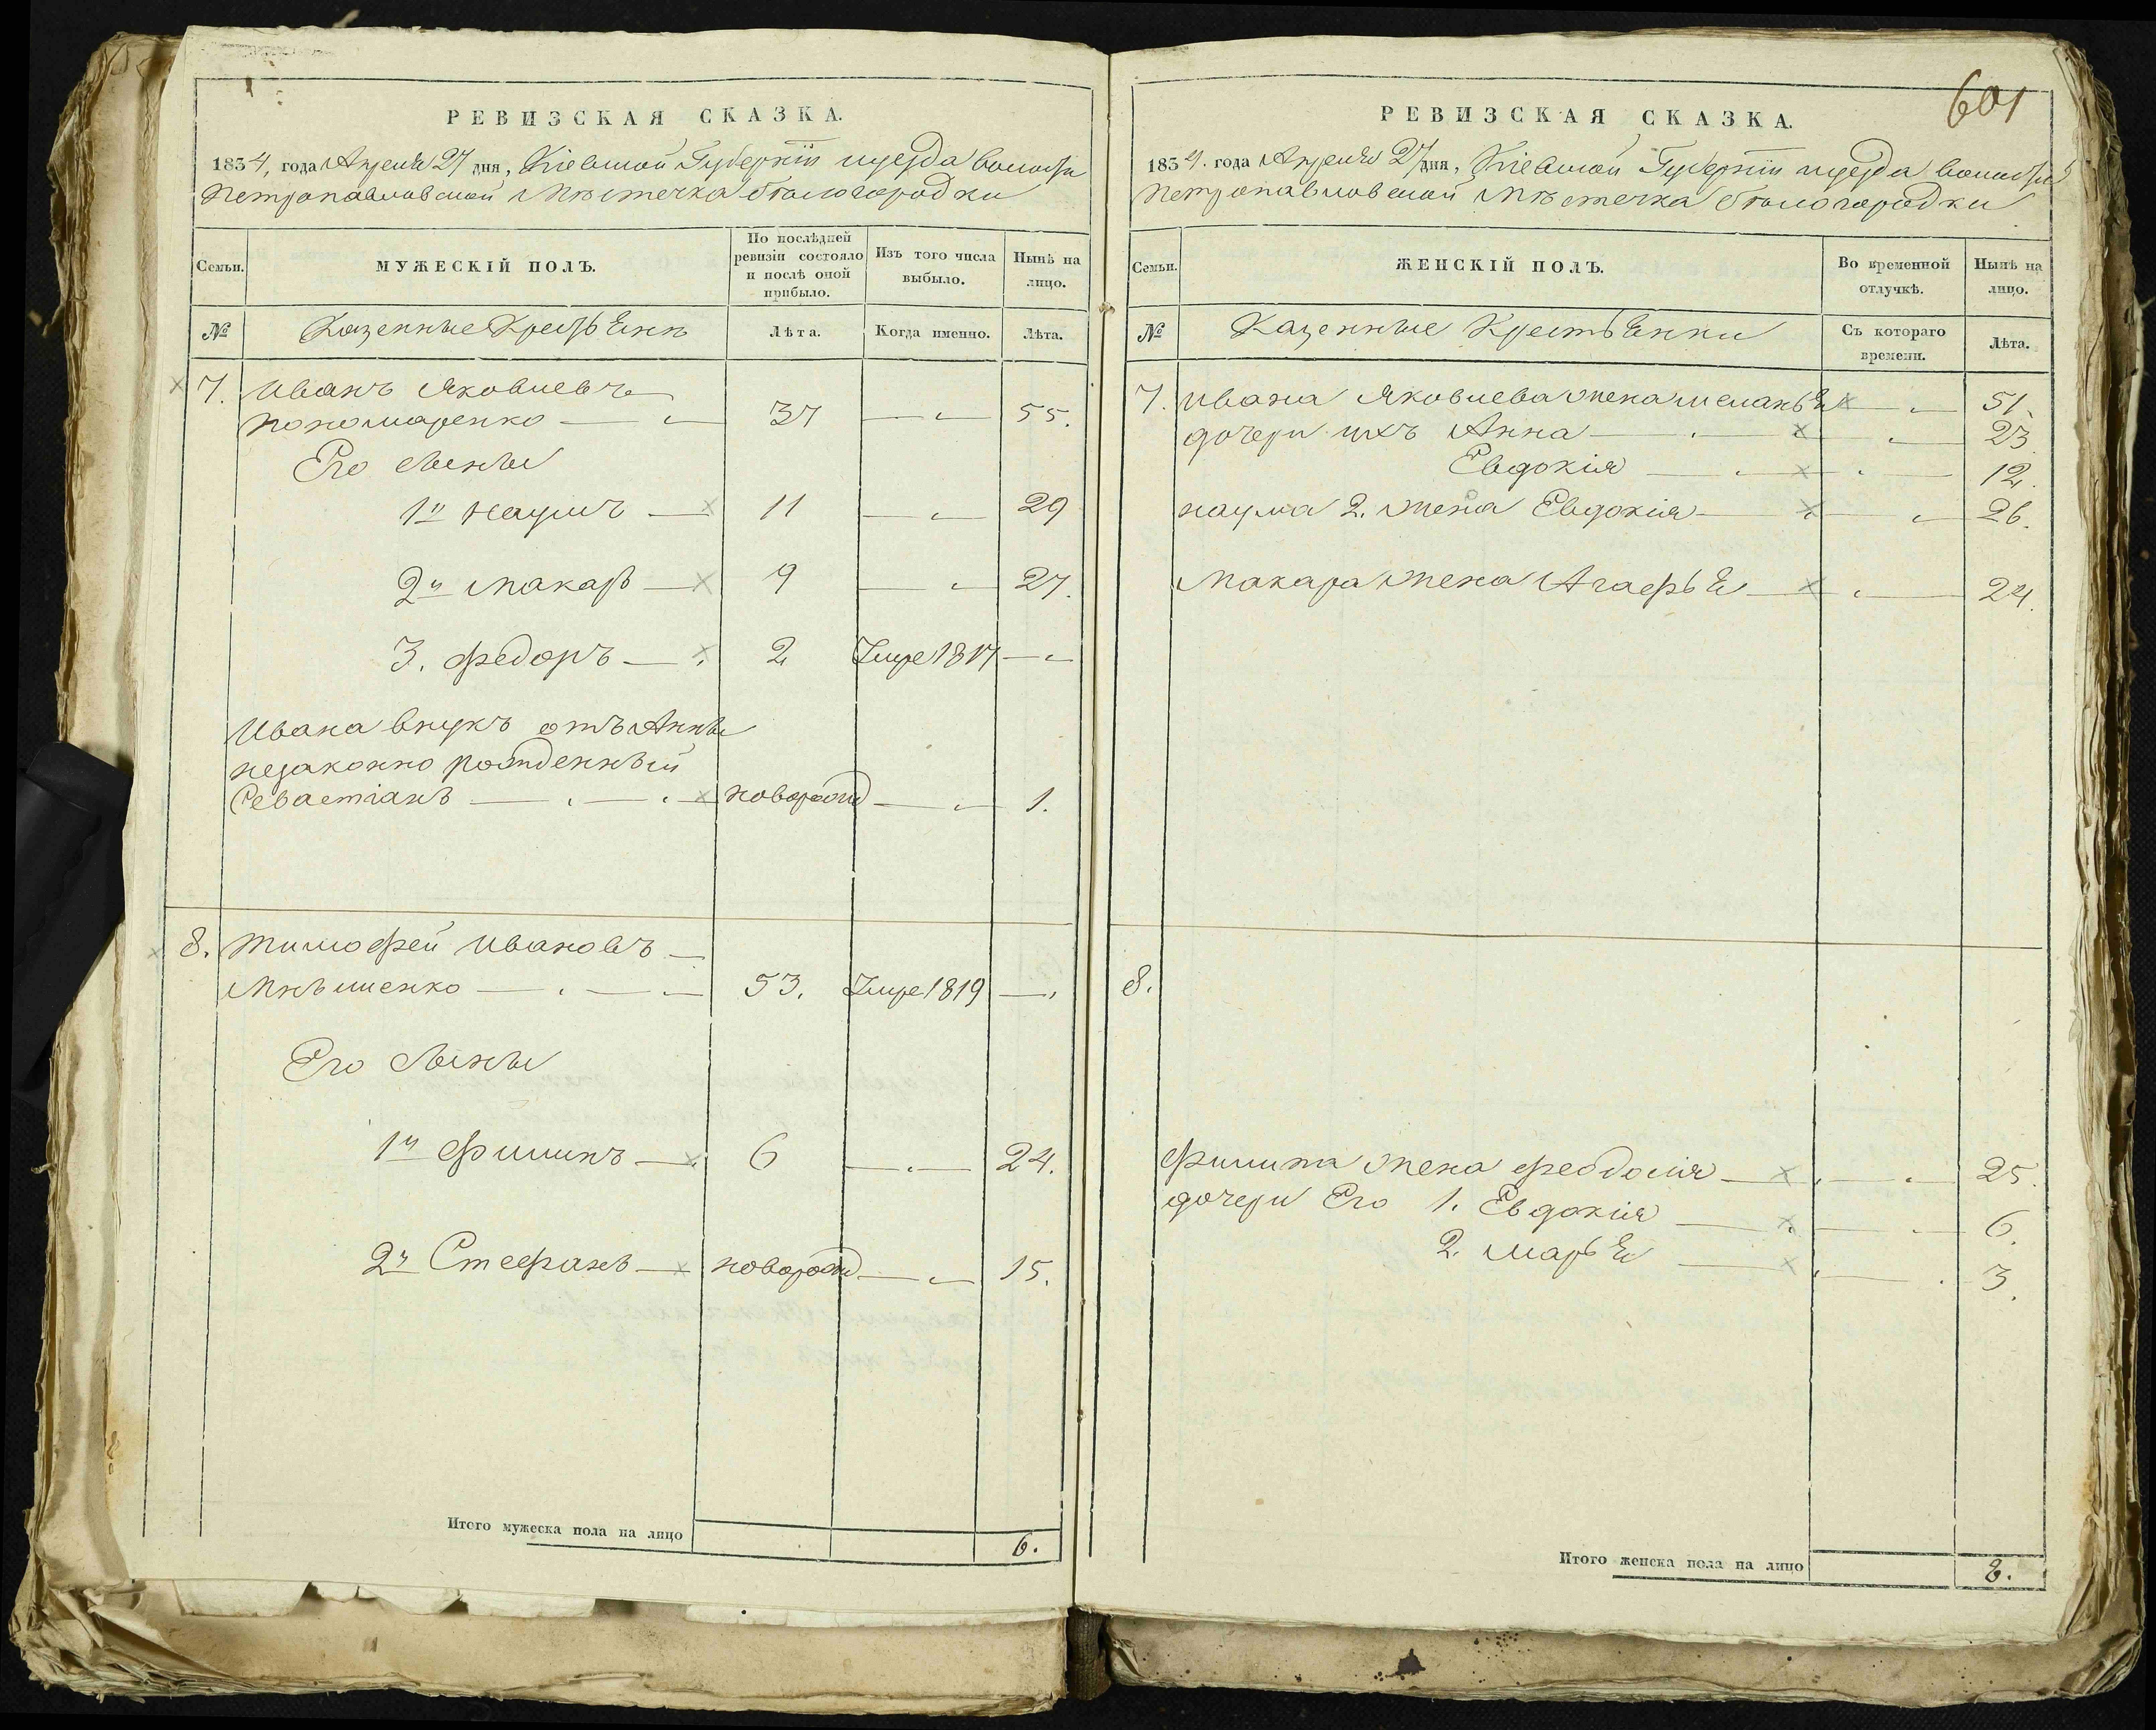 РЕВИЗСКАЯ СКАЗКА.
1834, года Апреля 27 дня, Кіевской Губерніи и уезда волости
Петропавловской Мѣстечка Бѣлогородки
Семьи.
МУЖЕСКІЙ ПОЛЪ.
По послѣдней ревизіи состояло и послѣ оной прибыло.
Изъ того числа выбыло.
Нынѣ на лицо.
№
Казенные Крестьяне
Лѣта.
Когда именно.
Лѣта.
7. Иванъ Яковлевъ
Пономаренко — 37 — 55.
Его сыны
1й Наумъ — 11 — 29
2й Макаръ — 9 — 27.
3. Федоръ — 2 Умре 1817 —
Ивана внукъ отъ Анны
незаконно рожденный
Севастіанъ — новорожд — 1.
8. Тимофей Ивановъ —
— 53. Умре 1819 —
Его сыны
1й Филипъ — 6 — 24.
2й Стефанъ — новорожд — 15.
Итого мужеска пола на лицо 6.
601
РЕВИЗСКАЯ СКАЗКА.
1834. года Апреля 27 дня, Кіевской Губерніи и уезда волости
Петропавловской Мѣстечка Бѣлогородки
Семьи.
ЖЕНСКІЙ ПОЛЪ.
Во временной отлучкѣ.
Нынѣ на лицо.
№
Казенные Крестьянки
Съ котораго времени.
Лѣта.
7. Ивана Яковлева жена Меланья — 51.
дочери ихъ Анна — 23.
Евдокія — 12.
Наума 2. жена Евдокія — 26.
Макара жена Агафья — 24.
8.
Филипа жена Феодосія — 25.
дочери Его 1. Евдокія — 6.
2. Марья — 3.
Итого женска пола на лицо 8.